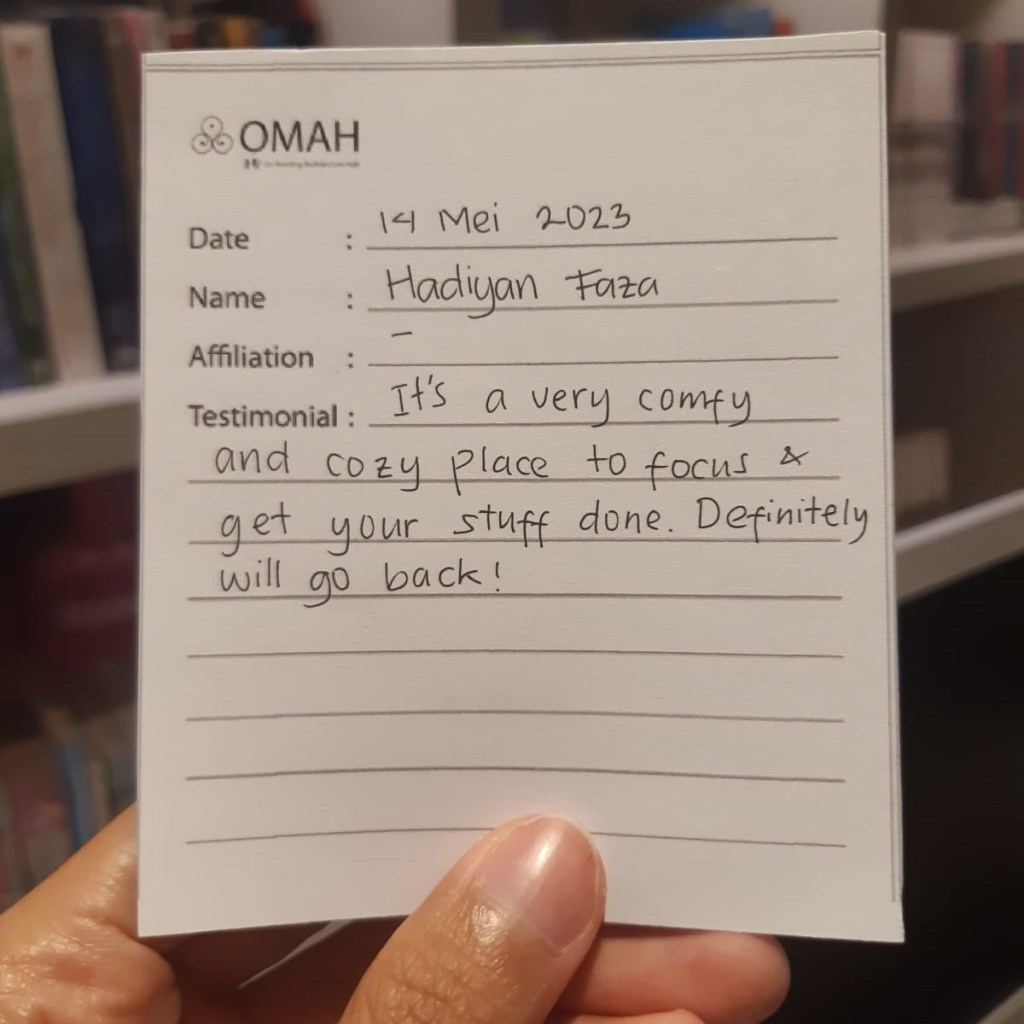 OMAH
Date : 14 Mei 2023
Name : Hadiyan Faza
Affiliation : -
Testimonial : It's a very comfy
and cozy place to focus &
get your stuff done. Definitely
will go back!